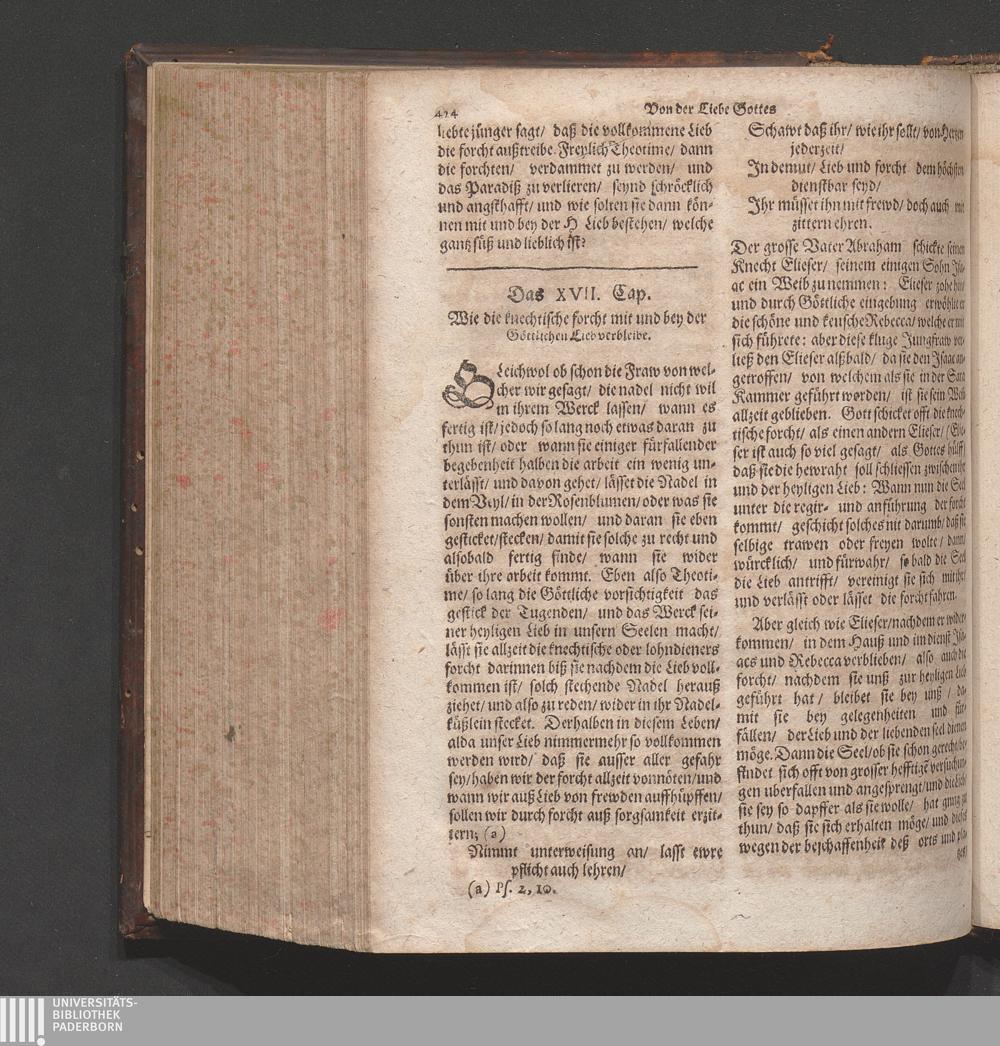 424
Von der Liebe Gottes
liebte jünger sagt/ daß die vollkommene Lieb
die forcht außtreibe. Freylich Theotime/ dann
die forchten/ verdammet zu werden/ und
das Paradiß zu verlieren/ seynd schröcklich
und angsthafft/ und wie solten sie dann kön-
nen mit und bey der H Lieb bestehen/ welche
gantz süß und lieblich ist?
Das XVII. Cap.
Wie die knechtische forcht mit und bey der
Göttlichen Lieb verbleibe.
Gleichwol ob schon die Fraw von wel-
cher wir gesagt/ die nadel nicht wil
in ihrem Werck lassen/ wann es
fertig ist/ jedoch so lang noch etwas daran zu
thun ist/ oder wann sie einiger fürfallender
begebenheit halben die arbeit ein wenig un-
terlässt/ und davon gehet/ lässet die Nadel in
dem Veyl/ in der Rosenblumen/ oder was sie
sonsten machen wollen/ und daran sie eben
gesticket/ stecken/ damit sie solche zu recht und
alsobald fertig finde/ wann sie wider
über ihre arbeit kommt. Eben also Theoti-
me/ so lang die Göttliche vorsichtigkeit das
gestick der Tugenden/ und das Werck sei-
ner heyligen Lieb in unsern Seelen macht/
lässt sie allzeit die knechtische oder lohndieners
forcht darinnen biß sie nachdem die Lieb voll-
kommen ist/ solch stechende Nadel herauß
ziehet/ und also zu reden/ wider in ihr Nadel-
küßlein stecket. Derhalben in diesem Leben/
alda unser Lieb nimmermehr so vollkommen
werden wird/ daß sie ausser aller gefahr
sey/ haben wir der forcht allzeit vonnöten/ und
wann wir auß Lieb von frewden auffhüpffen/
sollen wir durch forcht auß sorgsamkeit erzit-
tern; (a)
Nimmt unterweisung an/ lasst ewre
pflicht auch lehren/
(a) Ps. 2, 10.
Schawt daß ihr/ wie ihr sollt/ von Herzen
jederzeit/
In demut/ Lieb und forcht dem höchsten
dienstbar seyd/
Ihr müsset ihn mit frewd/ doch auch mit
zittern ehren.
Der grosse Vater Abraham schickte seinen
Knecht Elieser/ seinem einigen Sohn Isa-
ac ein Weib zu nemmen: Elieser zohe hin/
und durch Göttliche eingebung erwöhlte er
die schöne und keusche Rebecca/ welche er mit
sich führete: aber diese kluge Jungfraw ver-
ließ den Elieser alßbald/ da sie den Isaac an-
getroffen/ von welchem als sie in der Sara
Kammer geführt worden/ ist sie sein Weib
allzeit geblieben. Gott schicket offt die knech-
tische forcht/ als einen andern Elieser/ (Elie-
ser ist auch so viel gesagt/ als Gottes hülff)
daß sie die hewraht soll schliessen zwischen ihr
und der heyligen Lieb: Wann nun die Seel
unter die regir- und anführung der forcht
kommt/ geschicht solches nit darumb/ daß sie
selbige trawen oder freyen wolte/ dann/
würcklich/ und fürwahr/ so bald die Seel
die Lieb antrifft/ vereinigt sie sich mit ihr/
und verlässt oder lässet die forcht fahren.
Aber gleich wie Elieser/ nachdem er wider-
kommen/ in dem Hauß und im dienst Isa-
acs und Rebecca verblieben/ also auch die
forcht/ nachdem sie unß zur heyligen Lieb
geführt hat/ bleibet sie bey unß/ da-
mit sie bey gelegenheiten und für-
fällen/ der Lieb und der liebenden seel dienen
möge. Dann die Seel/ ob sie schon gerecht/ be-
findet sich offt von grosser hefftigē versuchun-
gen uberfallen und angesprengt/ und die Lieb/
sie sey so dapffer als sie wolle/ hat gnug zu
thun/ daß sie sich erhalten möge/ und dieses
wegen der beschaffenheit deß orts und pla-
tzes/
UNIVERSITÄTS-
BIBLIOTHEK
PADERBORN